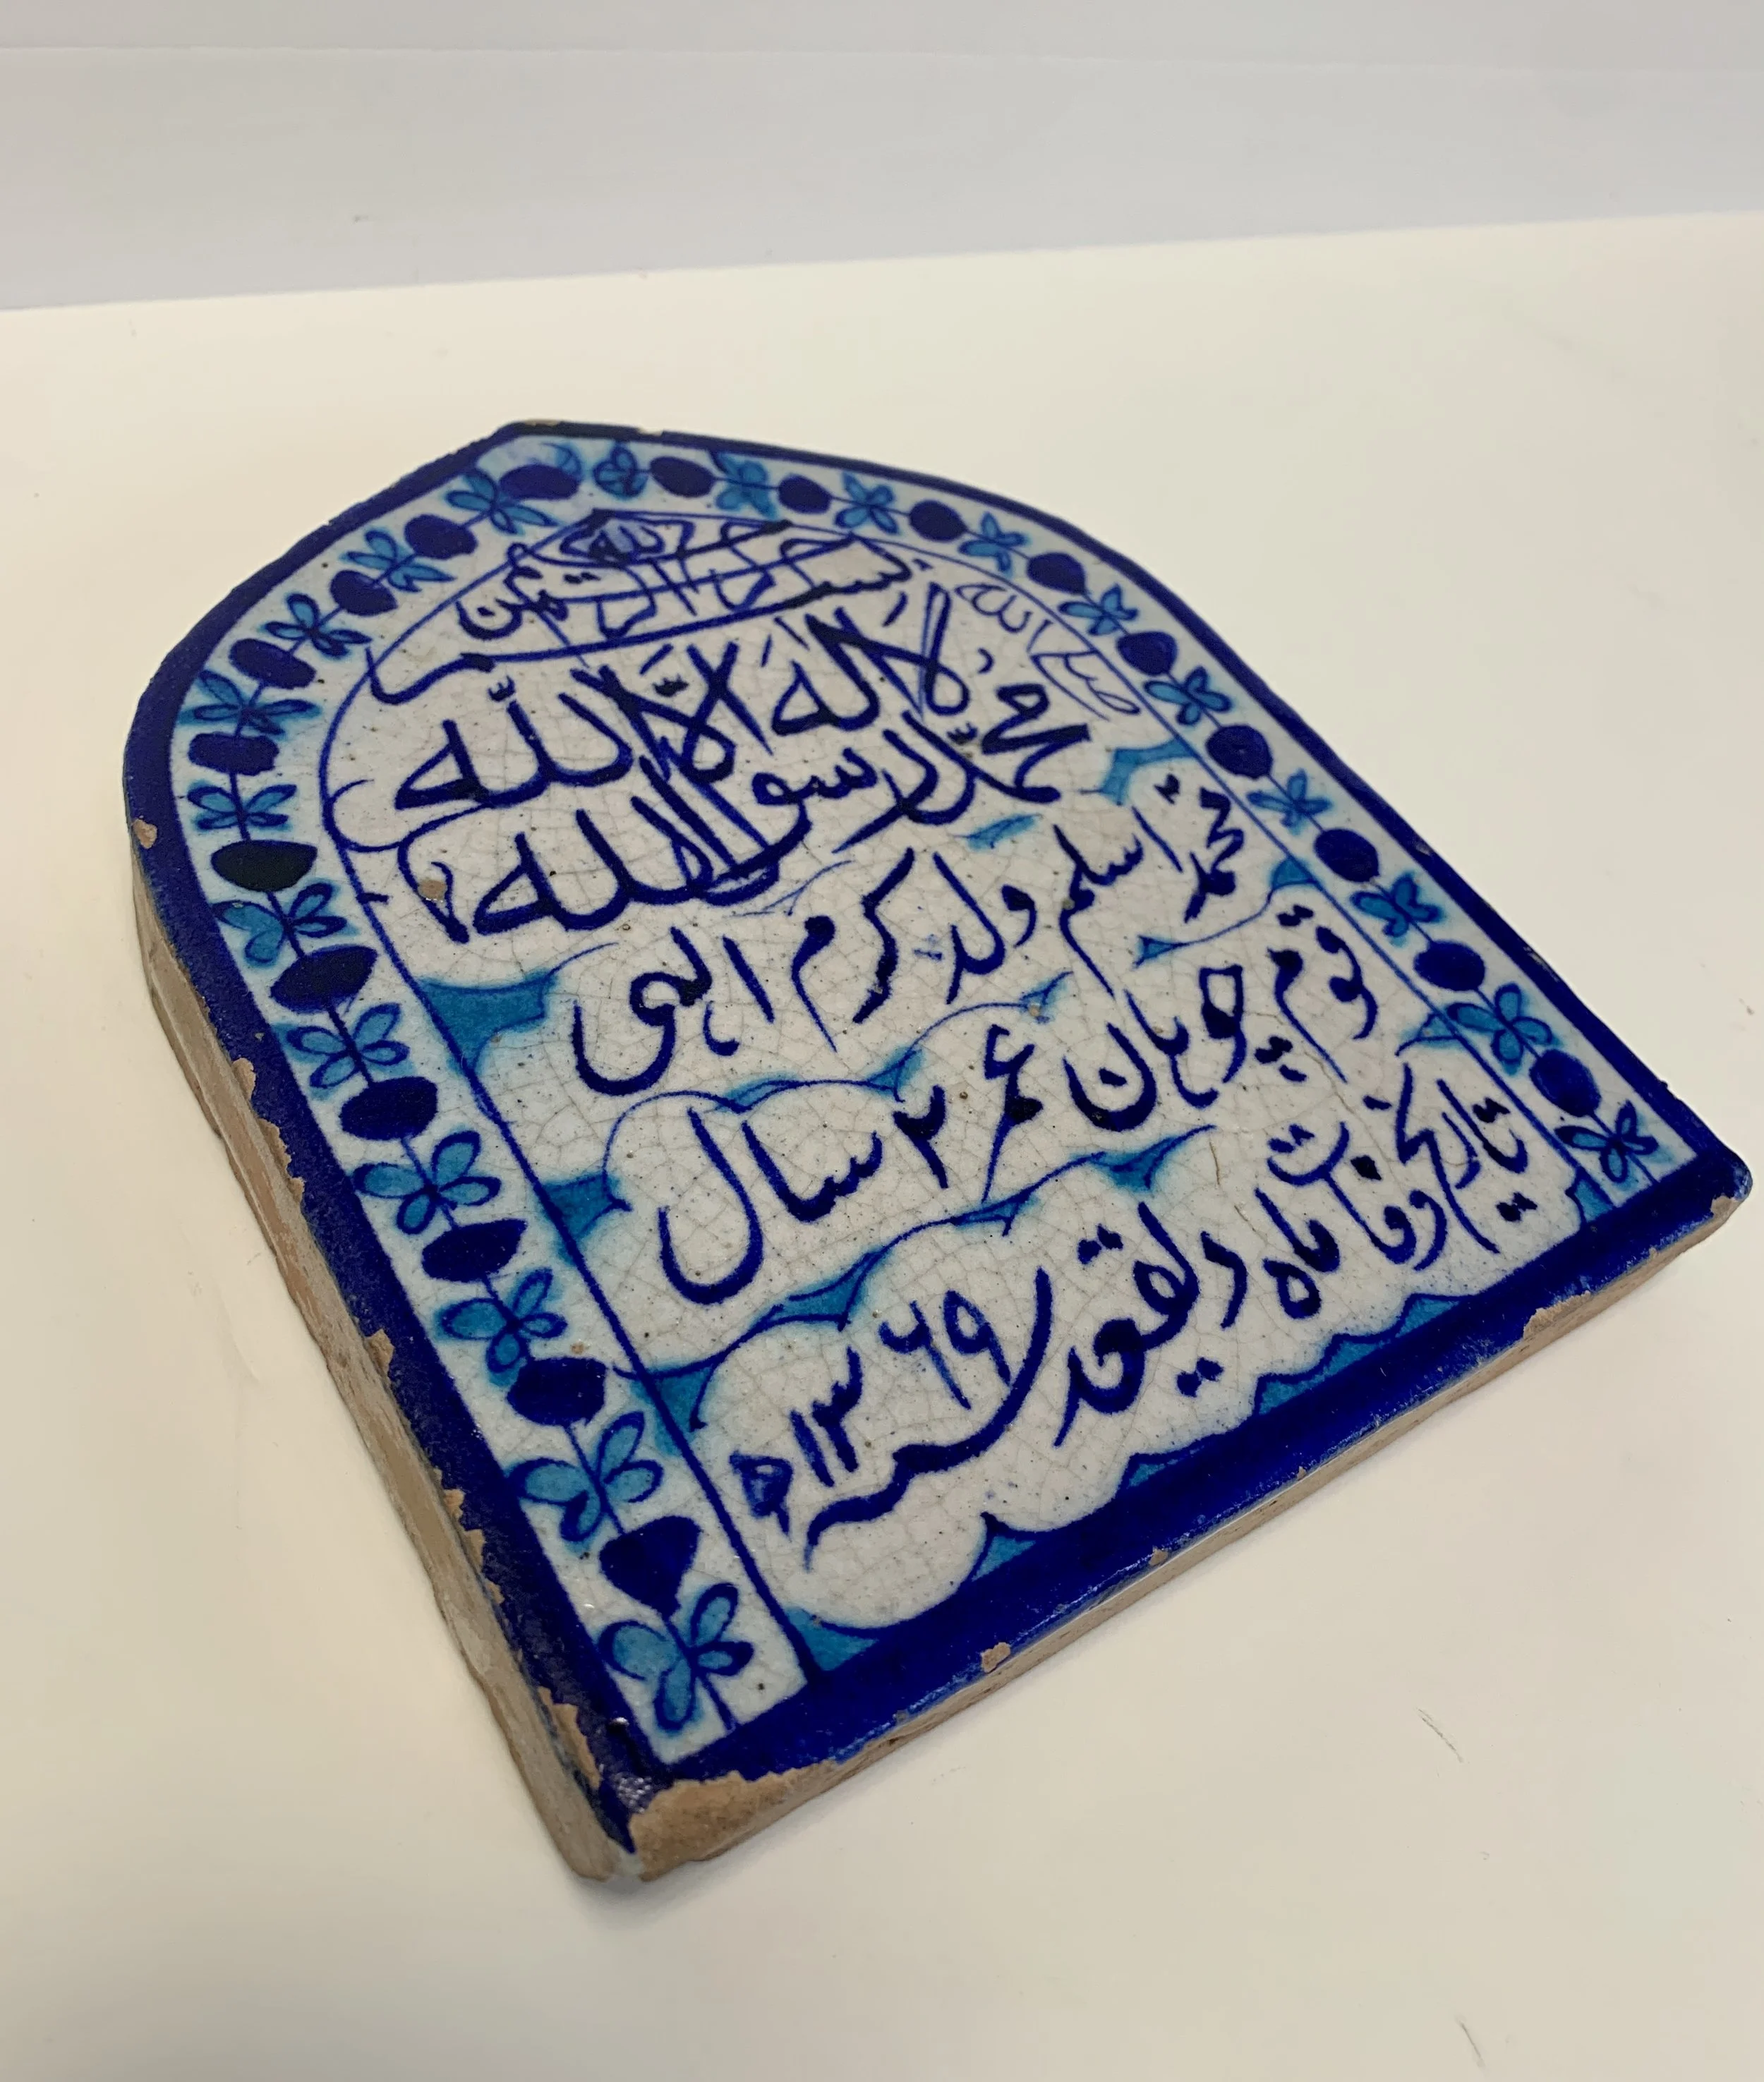 بسم الله الرحمن
لا اله الا الله
محمد رسول الله
محمد اسلم ولد کرم الہی
قوم چوہان عمر ۲ سال
تاریخ وفات ماہ ذیقعد
سنہ ۱۳۶۹ھ